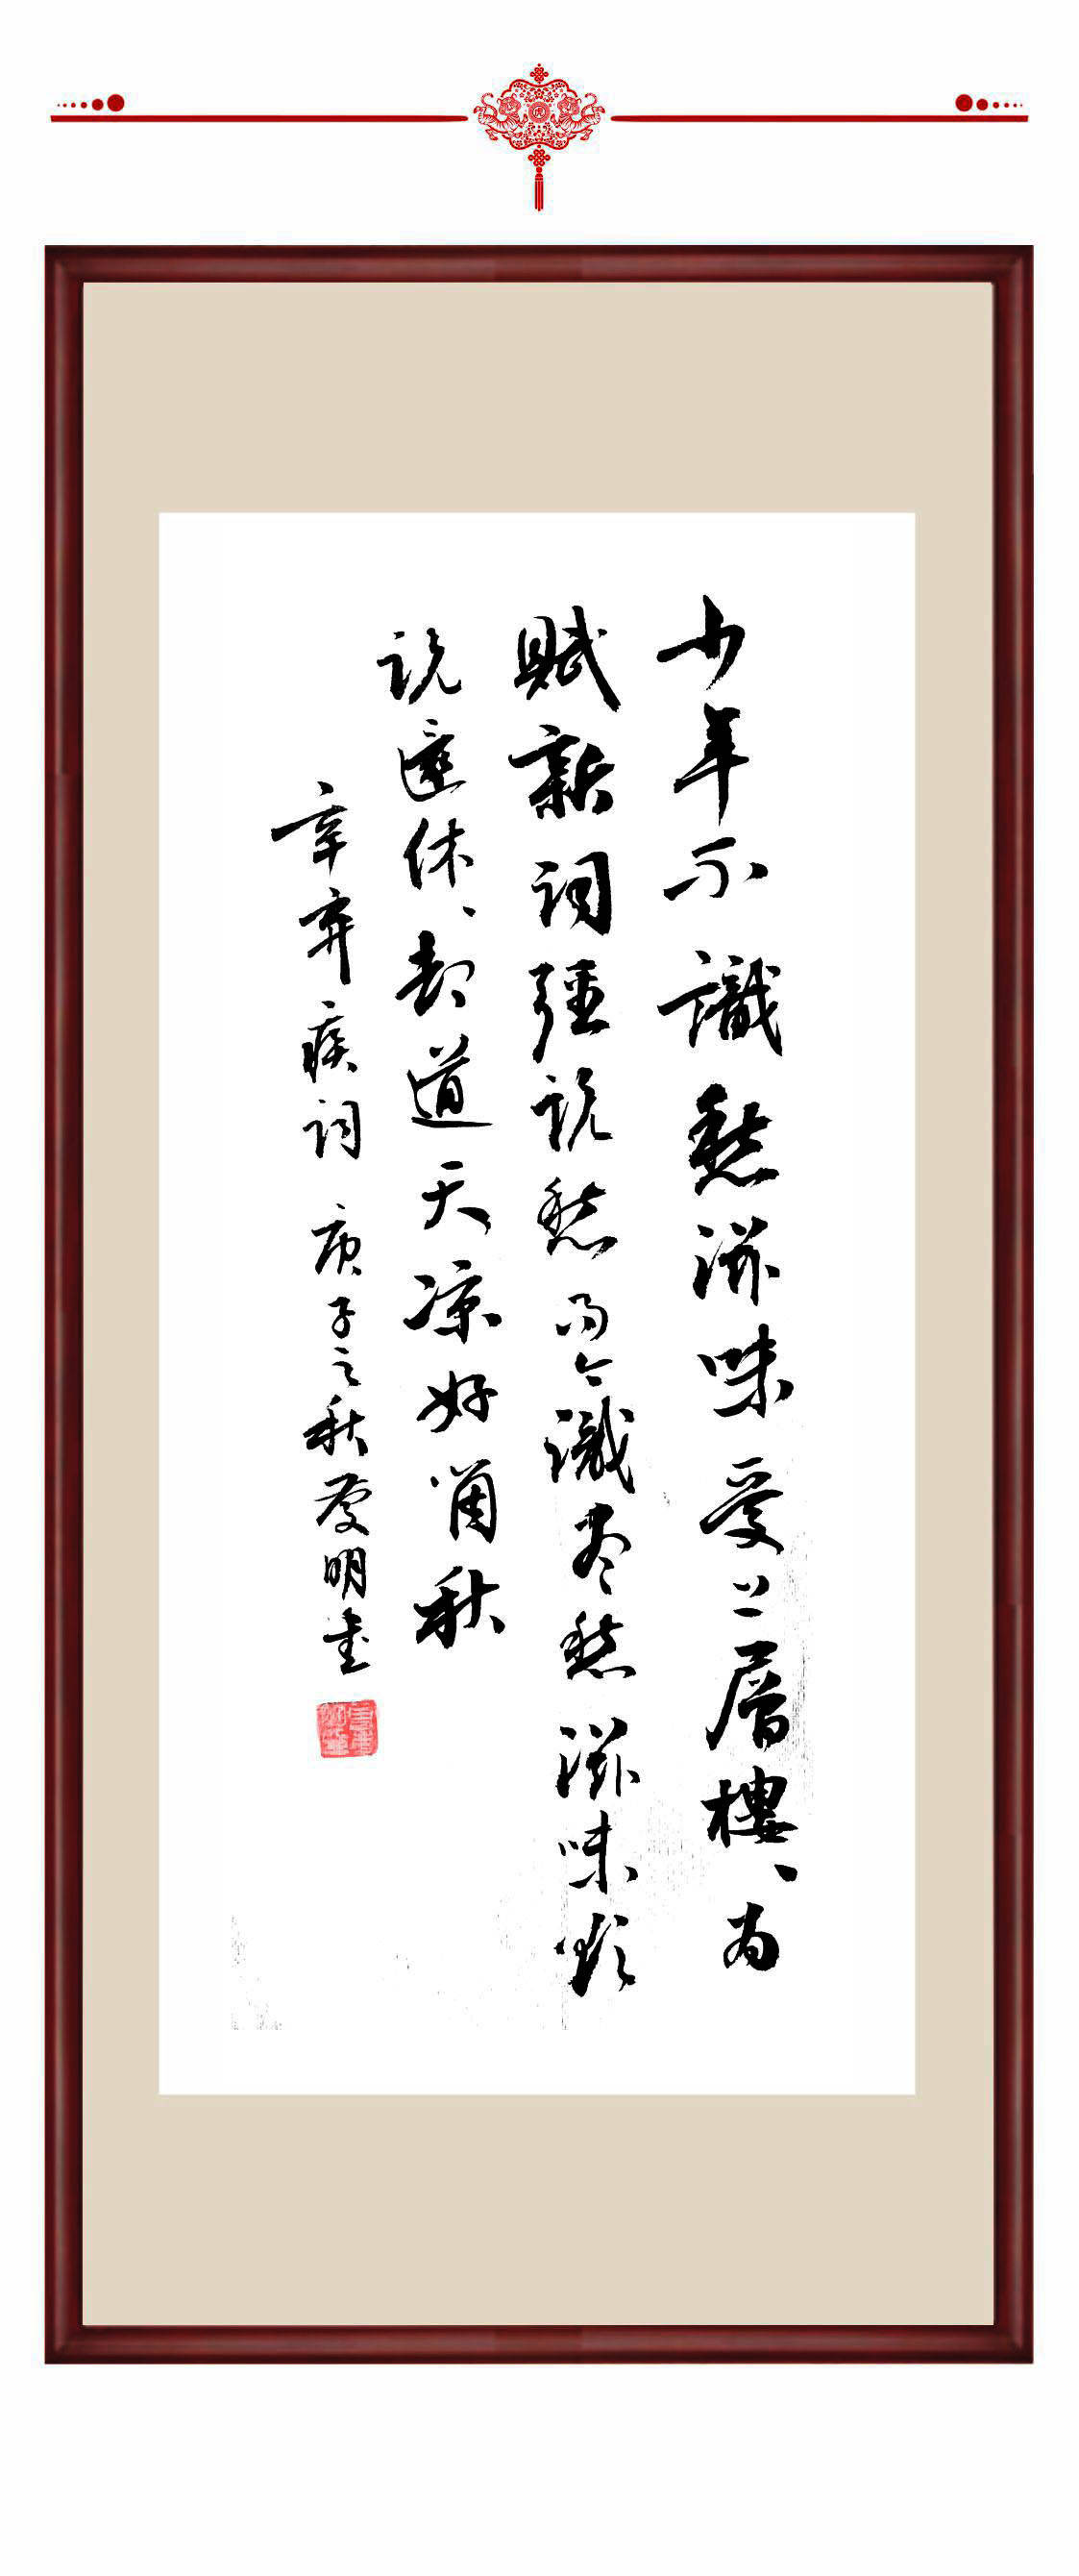 少年不識愁滋味愛上層樓、為
賦新詞強說愁而今識盡愁滋味欲
說還休、却道天涼好箇秋
辛棄疾詞 庚子之秋慶明書